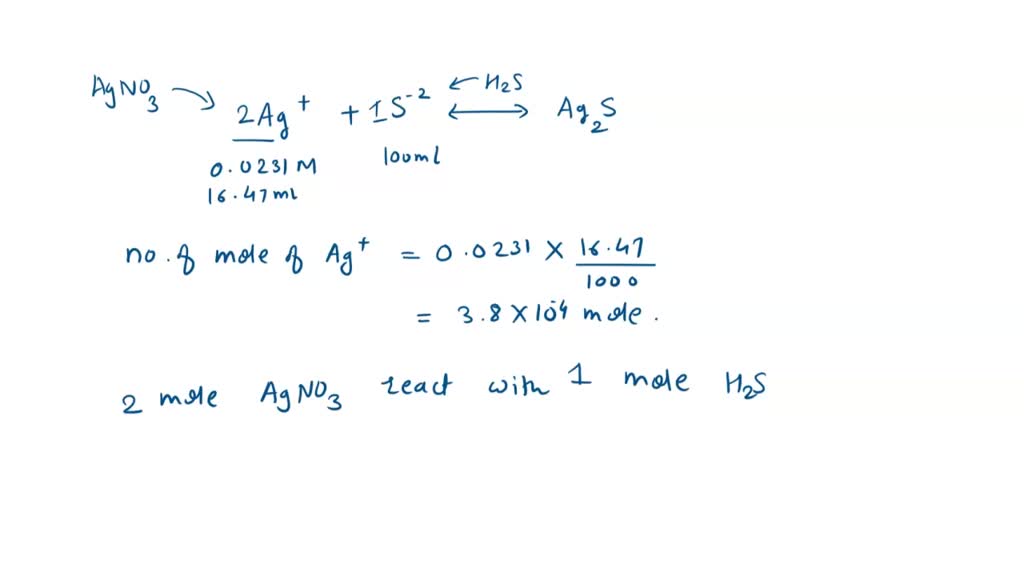 AgNO3 → 2Ag⁺ + 1S⁻² ← H2S ⟷ Ag2S
0.0231 M 100ml
16.47 ml
no. of mole of Ag⁺ = 0.0231 × 16.47/1000
= 3.8 × 10⁻⁴ mole.
2 mole AgNO3 react with 1 mole H2S